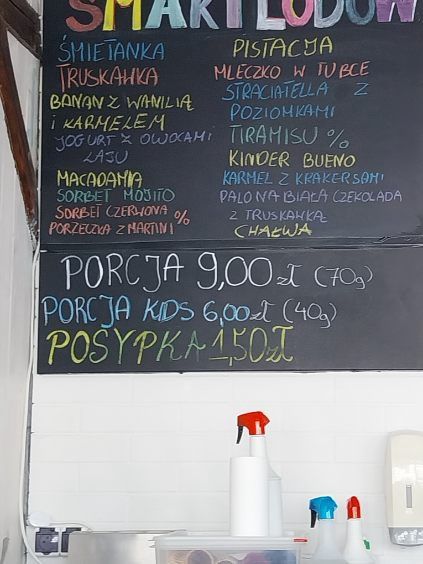 SMAKI LODÓW
ŚMIETANKA
TRUSKAWKA
BANAN Z WANILIĄ
I KARMELEM
JOGURT Z OWOCAMI
LAJU
MACADAMIA
SORBET MOJITO
SORBET CZERWONA %
PORZECZKA Z MARTINI
PISTACJA
MLECZKO W TUBCE
STRACIATELLA Z
POZIOMKAMI
TIRAMISU %
KINDER BUENO
KARMEL Z KRAKERSAMI
PALONA BIAŁA CZEKOLADA
Z TRUSKAWKĄ
CHAŁWA
PORCJA 9,00 zł (70g)
PORCJA KIDS 6,00 zł (40g)
POSYPKA 1,50 zł